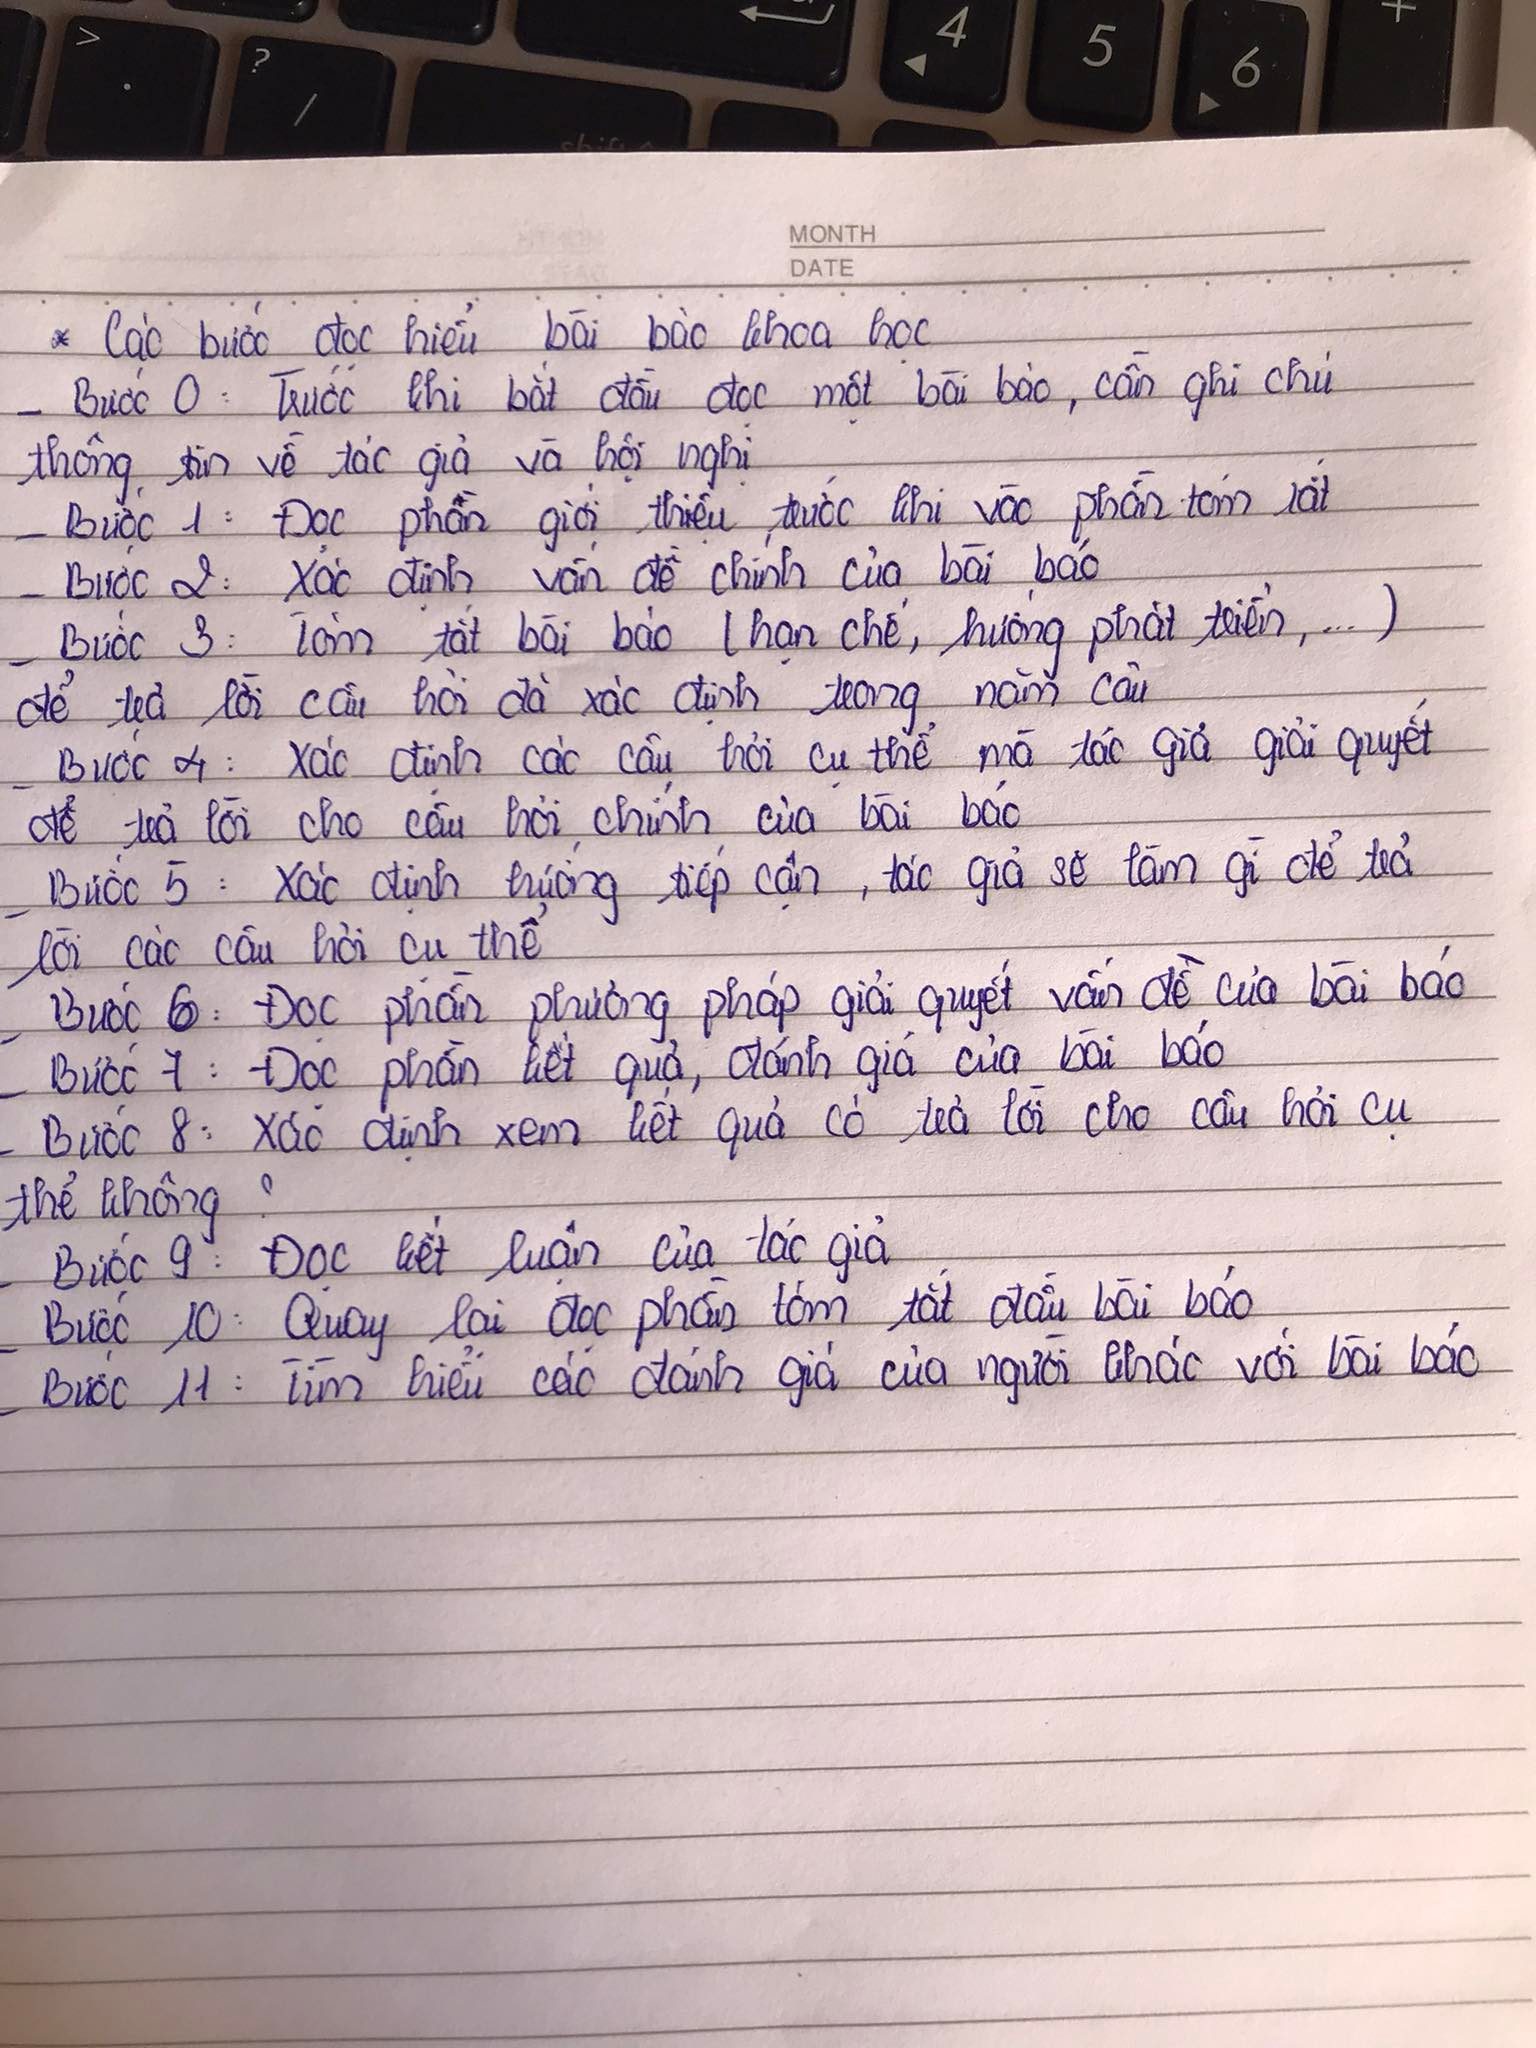 >
.
?
/
4
5
6
+
shift
MONTH
DATE
* Các bước đọc hiểu bài báo khoa học
- Bước 0: Trước khi bắt đầu đọc một bài báo, cần ghi chú
thông tin về tác giả và hội nghị
- Bước 1: Đọc phần giới thiệu trước khi vào phần tóm tắt
- Bước 2: Xác định vấn đề chính của bài báo
- Bước 3: Tóm tắt bài báo (hạn chế, hướng phát triển, ...)
để trả lời câu hỏi đã xác định trong năm câu
- Bước 4: Xác định các câu hỏi cụ thể mà tác giả giải quyết
để trả lời cho câu hỏi chính của bài báo
- Bước 5: Xác định hướng tiếp cận, tác giả sẽ làm gì để trả
lời các câu hỏi cụ thể
- Bước 6: Đọc phần phương pháp giải quyết vấn đề của bài báo
- Bước 7: Đọc phần kết quả, đánh giá của bài báo
- Bước 8: Xác định xem kết quả có trả lời cho câu hỏi cụ
thể không?
- Bước 9: Đọc kết luận của tác giả
- Bước 10: Quay lại đọc phần tóm tắt đầu bài báo
- Bước 11: Tìm hiểu các đánh giá của người khác với bài báo